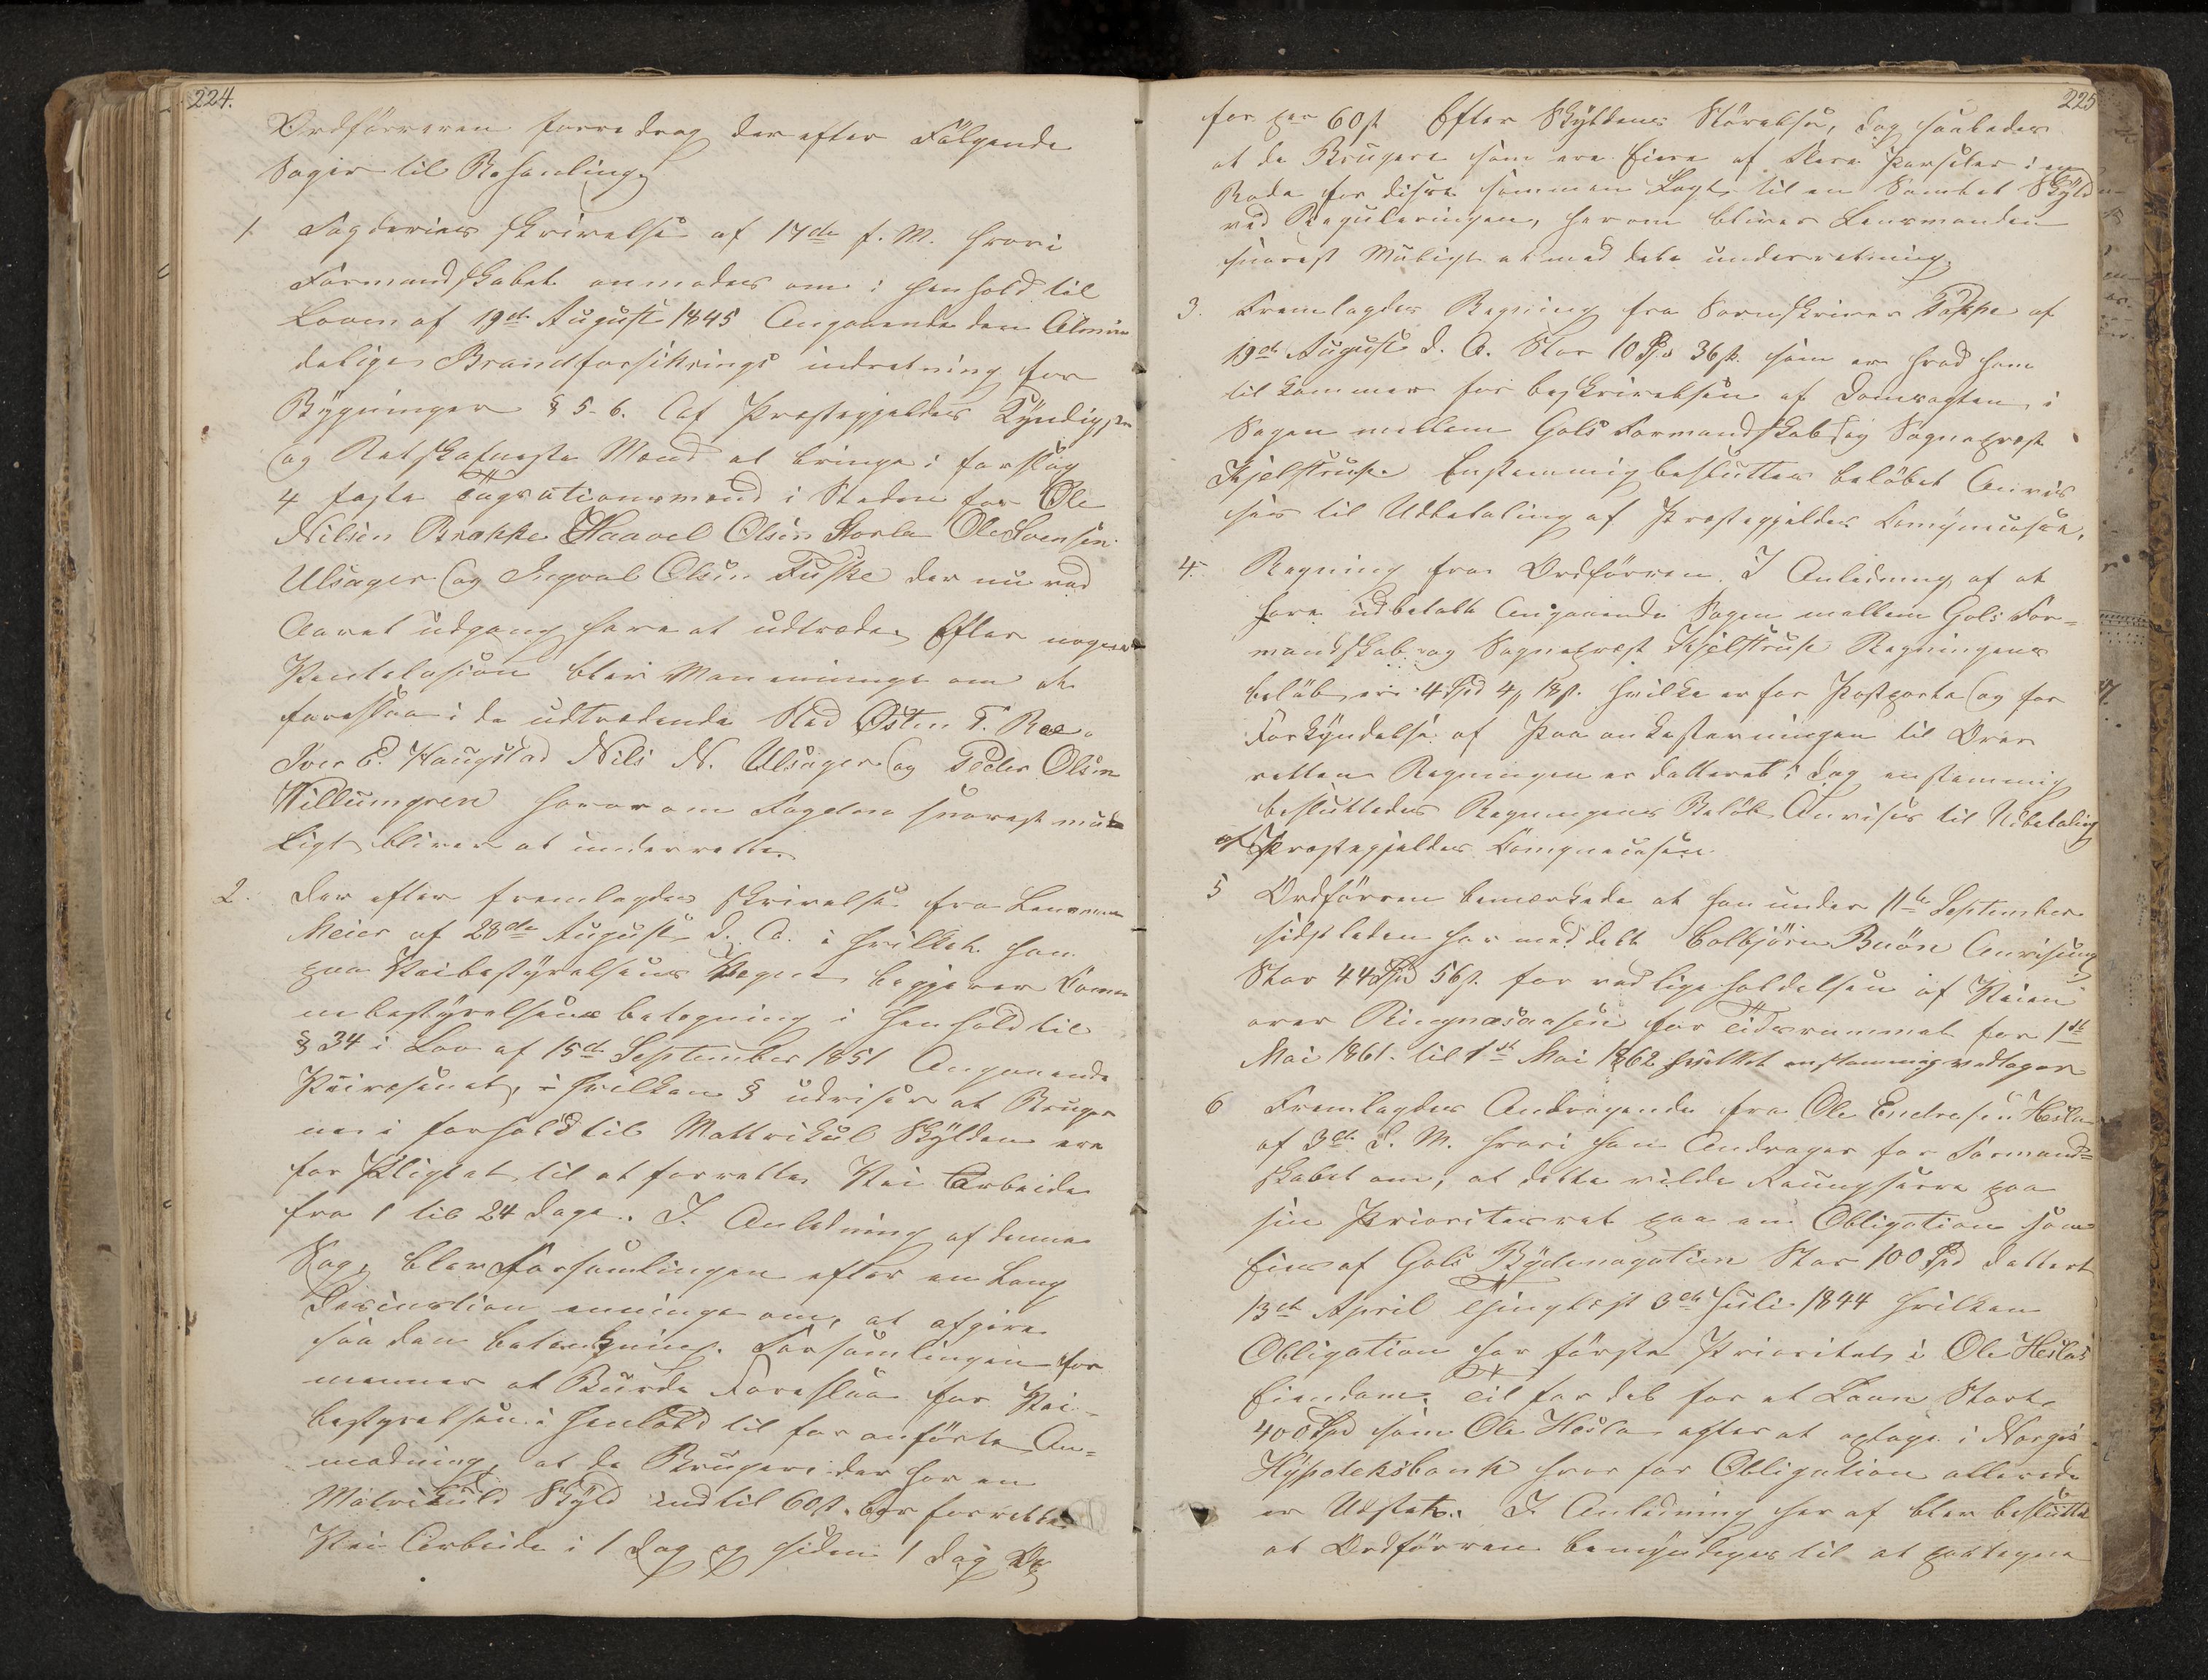 224.
Ordførreren forredrog derefter Følgende
Sager til Behandling
1. Fogderiets skrivelse af 17de f. M. hvori
Formandskabet anmodes om i henhold til
Loven af 19de August 1845 Angaaende den Almin
delige Brandforsikrings indretning for
Bygninger § 5-6. Af Præstegjeldets Kyndigste
og Retskafneste Mænd at bringe i forslag
4 faste Taxationsmænd i Stedet for Ole
Nilsen Brekke Haavel Olsen Storla Ole Svensen
Ulsager og Ingval Olsen Tuske der nu ved
Aaret udgang have at udtræde. Efter nogen
Ventelasion blev Man eninge om at
foreslaa i de udtrædende Sted Østen T. Roe.
Iver E. Haugstad Nils N. Ulsager og Peder Olsen
Villumgren hvorom Fogden snarest mu
ligt bliver at underrette.
2. Der efter fremlagdes skrivelse fra Lensmand
Meier af 28de August d. A. i hvilket han
paa Veibestyrelsens Vegne begjærer Komu
nebestyrelsens betegning i Henhold til
§ 34 i Lov af 15de September 1851 Angaaende
Veivæsenet, i hvilken § udviser at Bruger
ne i forhold til Mattrikul Skylden ere
for Pligtet til at forrette Vei Arbeide
fra 1 til 24 dage. I Anledning af denne
Sag, blev Forsamlingen efter en Lang
Discustion enninge om, at afgive
saadan betenkning. Forsamlingen for
menner at Burde Foreslaa for Vei-
bestyrelsen i Henhold til for anførte An=
modning, at de Brugere der har en
Matrikuld Skyld indtil 60 s. bør forrette
Vei Arbeide i 1 Dag og siden 1 dag
225
for per 60 s Efter Skyldens Størelse, dog saaledes
at de Brugere som ere Eiere af Flere Parseler i en
Rode for disse sammen Lagt til en Samlet Skyld
ved Reguleringen, herom bliver Lensmanden
snarest Muligt at meddele underretning.
3. Fremlagdes Regning fra Sorenskriver Poppe af
19de August d. A. Stor 10 Spd 36 s. som er hvad ham
til kommer for beskrivelsen af Domsagten i
Sagen mellem Gols Formandskab og Sognepræst
Kjelstrup. Enstemmig besluttes beløbet Anvis
ses til Udbetaling af Præstegjeldets Komunecasse.
4. Regning fra Ordførren. I Anledning af at
have udbetalt Angaaende Sagen mellem Gols For=
mandskab og Sognepræst Kjelstrup Regningens
beløb, er 4 Spd 4 18 s. hvilke er for Postporto og for
Forkyndelse af Paaankestevningen til Over
retten Regningen er datteret i Dag enstemmig
besluttedes Regningens Beløb Anvises til Udbetaling
af Præstegjeldets Komunecassen.
5 Ordførren bemærkede at han under 11te September
sidstleden har meddelt Colbjørn Bøen Anvisning
Stor 44 Spd 56 s. for vedligeholdelsen af Veien
over Ringnæsaasen for Tidsrummet for 1ste
Mai 1861. til 1ste Mai 1862 hvilket enstemmig vedtages
6 Fremlagdes Andragende fra Ole Endresen Hesla
af 3de d. M. hvori han Andrager for Formand=
skabet om, at dette vilde Raungserre paa
sin Prioritesret paa en Obligation som
Eies af Gols Bydemagatien Stor 100 Spd dattert
13de April Thinglæst 3de Juli 1844 hvilken
Obligation har første Prioritet, i Ole Heslas
Eiendom. Til fordel for et Laan Stort
400 Spd som Ole Hesla agter at optage i Norges
Hypoteksbank hvor for Obligation allerede
er Udstet. I Anledning heraf blev besluttet
at Ordførren bemyndiges til at paategne